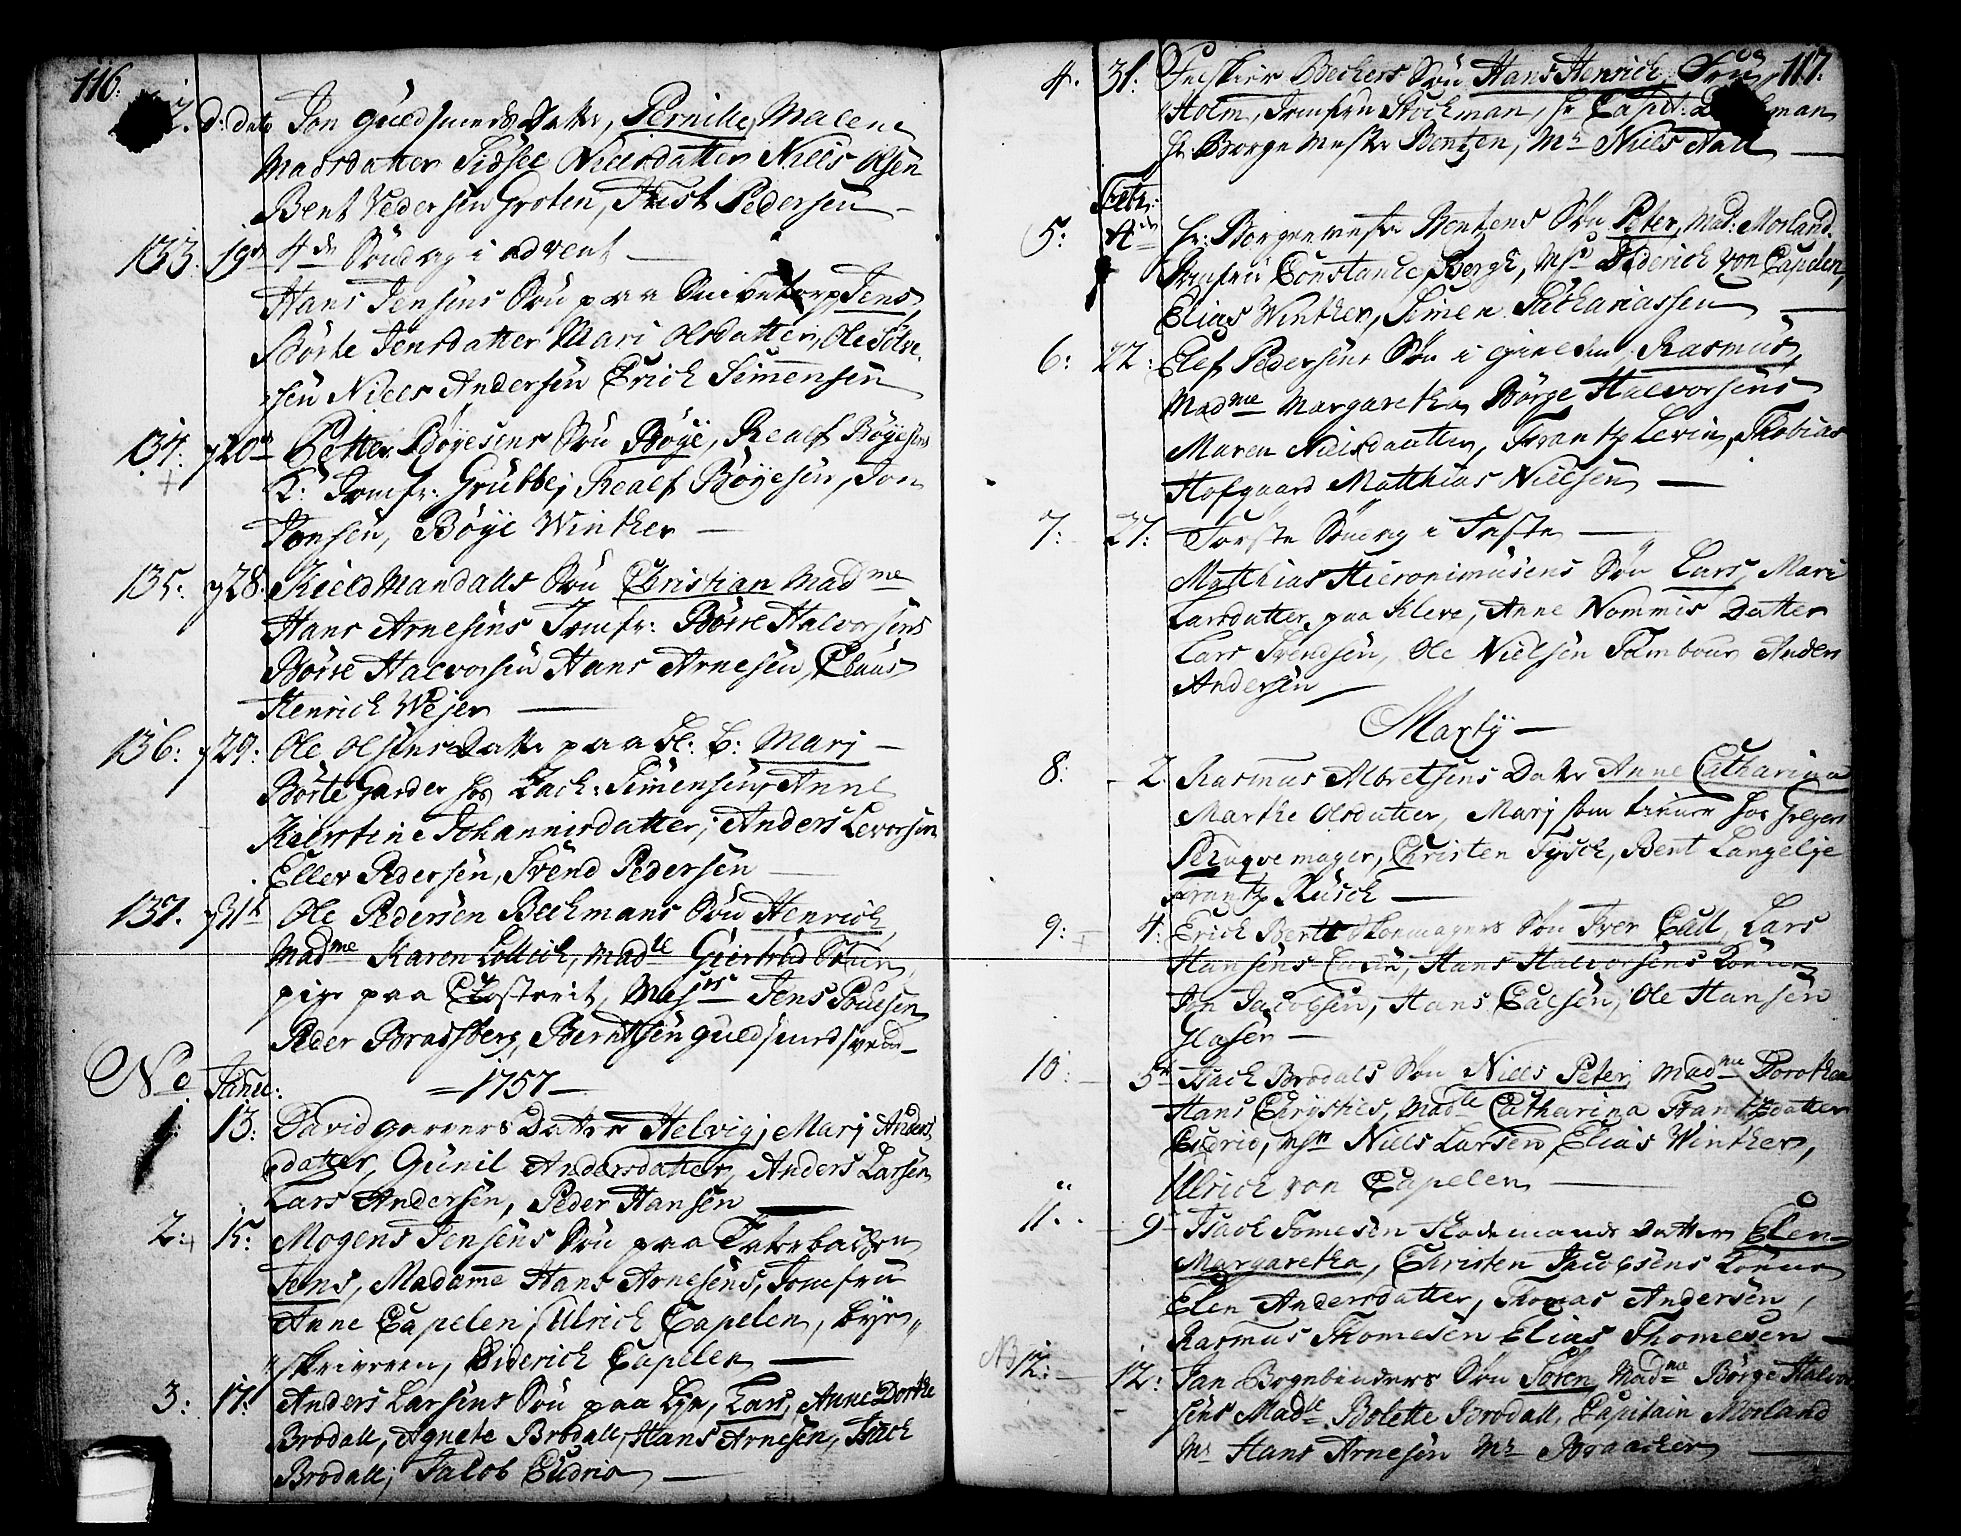 116.
d: dato Jon Guldsmeds Datter, Pernille, Malene
Madsdatter Sidsel Nielsdatter Niels Olsen
Bent Pedersen Groten, Pedersen
133. 19de 4de Söndag i advent
Hans Jensens Sön paa Jens
Börte Jensdatter Mari Olsdatter, Ole
sen Niels Andersen Erich Simensen
134. 20de Petter Böyesens Sön Böye, Realf Böyesens
K: Jomfr: Grubbe, Realf Böyesen, Jon
Jonsen, Böye Winther
135. 28. Kield Mandalls Sön Christian Madme
Hans Arnesens Jomfr: Börre Halvorsens
Börre Halvorsen Hans Arnesen, Claus
Henrich Wejer
136: 29: Ole Olsens Datter paa Marj
Börte Garder hos Zach: Simensen, Anne
Kierstine Johannisdatter, Anders Levorsen
Eller Pedersen, Svend Pedersen
137. 31te Ole Pedersen Bechmans Sön Henrich,
Madme Karen Lottich, Madle Giertrud
pige paa Closteret, Jens Poulsen
Peder Bradsberg, Berntsen guldsmedsvend
No Janu: 1757
13: David Datter Helvig, Marj Anders
datter, Gunil Andersdatter, Anders Larsen
Lars Andersen, Peder Hansen
2: 15: Mogens Jensens Sön paa Faterbachen
Jens, Madame Hans Arnesens, Jomfru
Anne Capelen, Ulrich Capelen, Bye
skriveren, Diderich Capelen
3: 17: Anders Larsens Sön paa Lye, Lars, Anne Dorthe
Brodall, Agnete Brodall, Hans Arnesen, Isach
Brodall, Jacob Eudrio
117.
4. 31: Bechers Sön Hans Henrich,
Holm, Jomfru Stockman, hr Capt:
hr Borge Mester Bentzen, Mr Niels Aall
Febr:
5: 4de hr: Borgemester Bentzens Sön Peter, Mad: Morland
Jomfru Constance Borge, Msr Diderich von Capelen,
Elias Winther, Simen Zachariassen
6: 22: Elef Pedersens Sön i Rasmus
Madme Margaretha Börge Halvorsens
Maren Nielsdatter, Frantz Levin, Thobias
Hofgaard Matthias Nielsen
7: 27: Förste Söndag i Faste
Matthias Hieronimusens Sön Lars, Mari
Larsdatter paa Kleve, Anne Nommis Datter
Lars Svendsen, Ole Nielsen Tambour Anders
Andersen
Martj
8: 2. Rasmus Albretsens Datter Anne Catharina
Marthe Olsdatter, Marj som tiener hos Greger
Peruqvemager, Christen Tysch, Bent Langelje
Frantz Rusch
9: 4: Erich Bertt Skomagers Sön Iver Call, Lars
Hansens Hans Halvorsens Konne
Jon Jacobsen, Hans Calsen, Ole Hansen
Glasen
10: 5te Isach Brodals Sön Niels Peter, Madme Dorothea
Hans Christies, Madle Catharina Frantzdatter
Eudrio, Msr Niels Larsen, Elias Winther,
Ulrich von Capelen
11. 9 Isach Tomesen Datter Elen
Margaretha, Christen Jacobsens Konne
Elen Andersdatter, Thomas Andersen,
Rasmus Thomesen Elias Thomesen
NB 12: 12: Jan Bogebinders Sön Sören, Madme Börge Halvor
sens Madle Bolette Brodall, Capitain Morland
Mr Hans Arnesen Mr Braacher